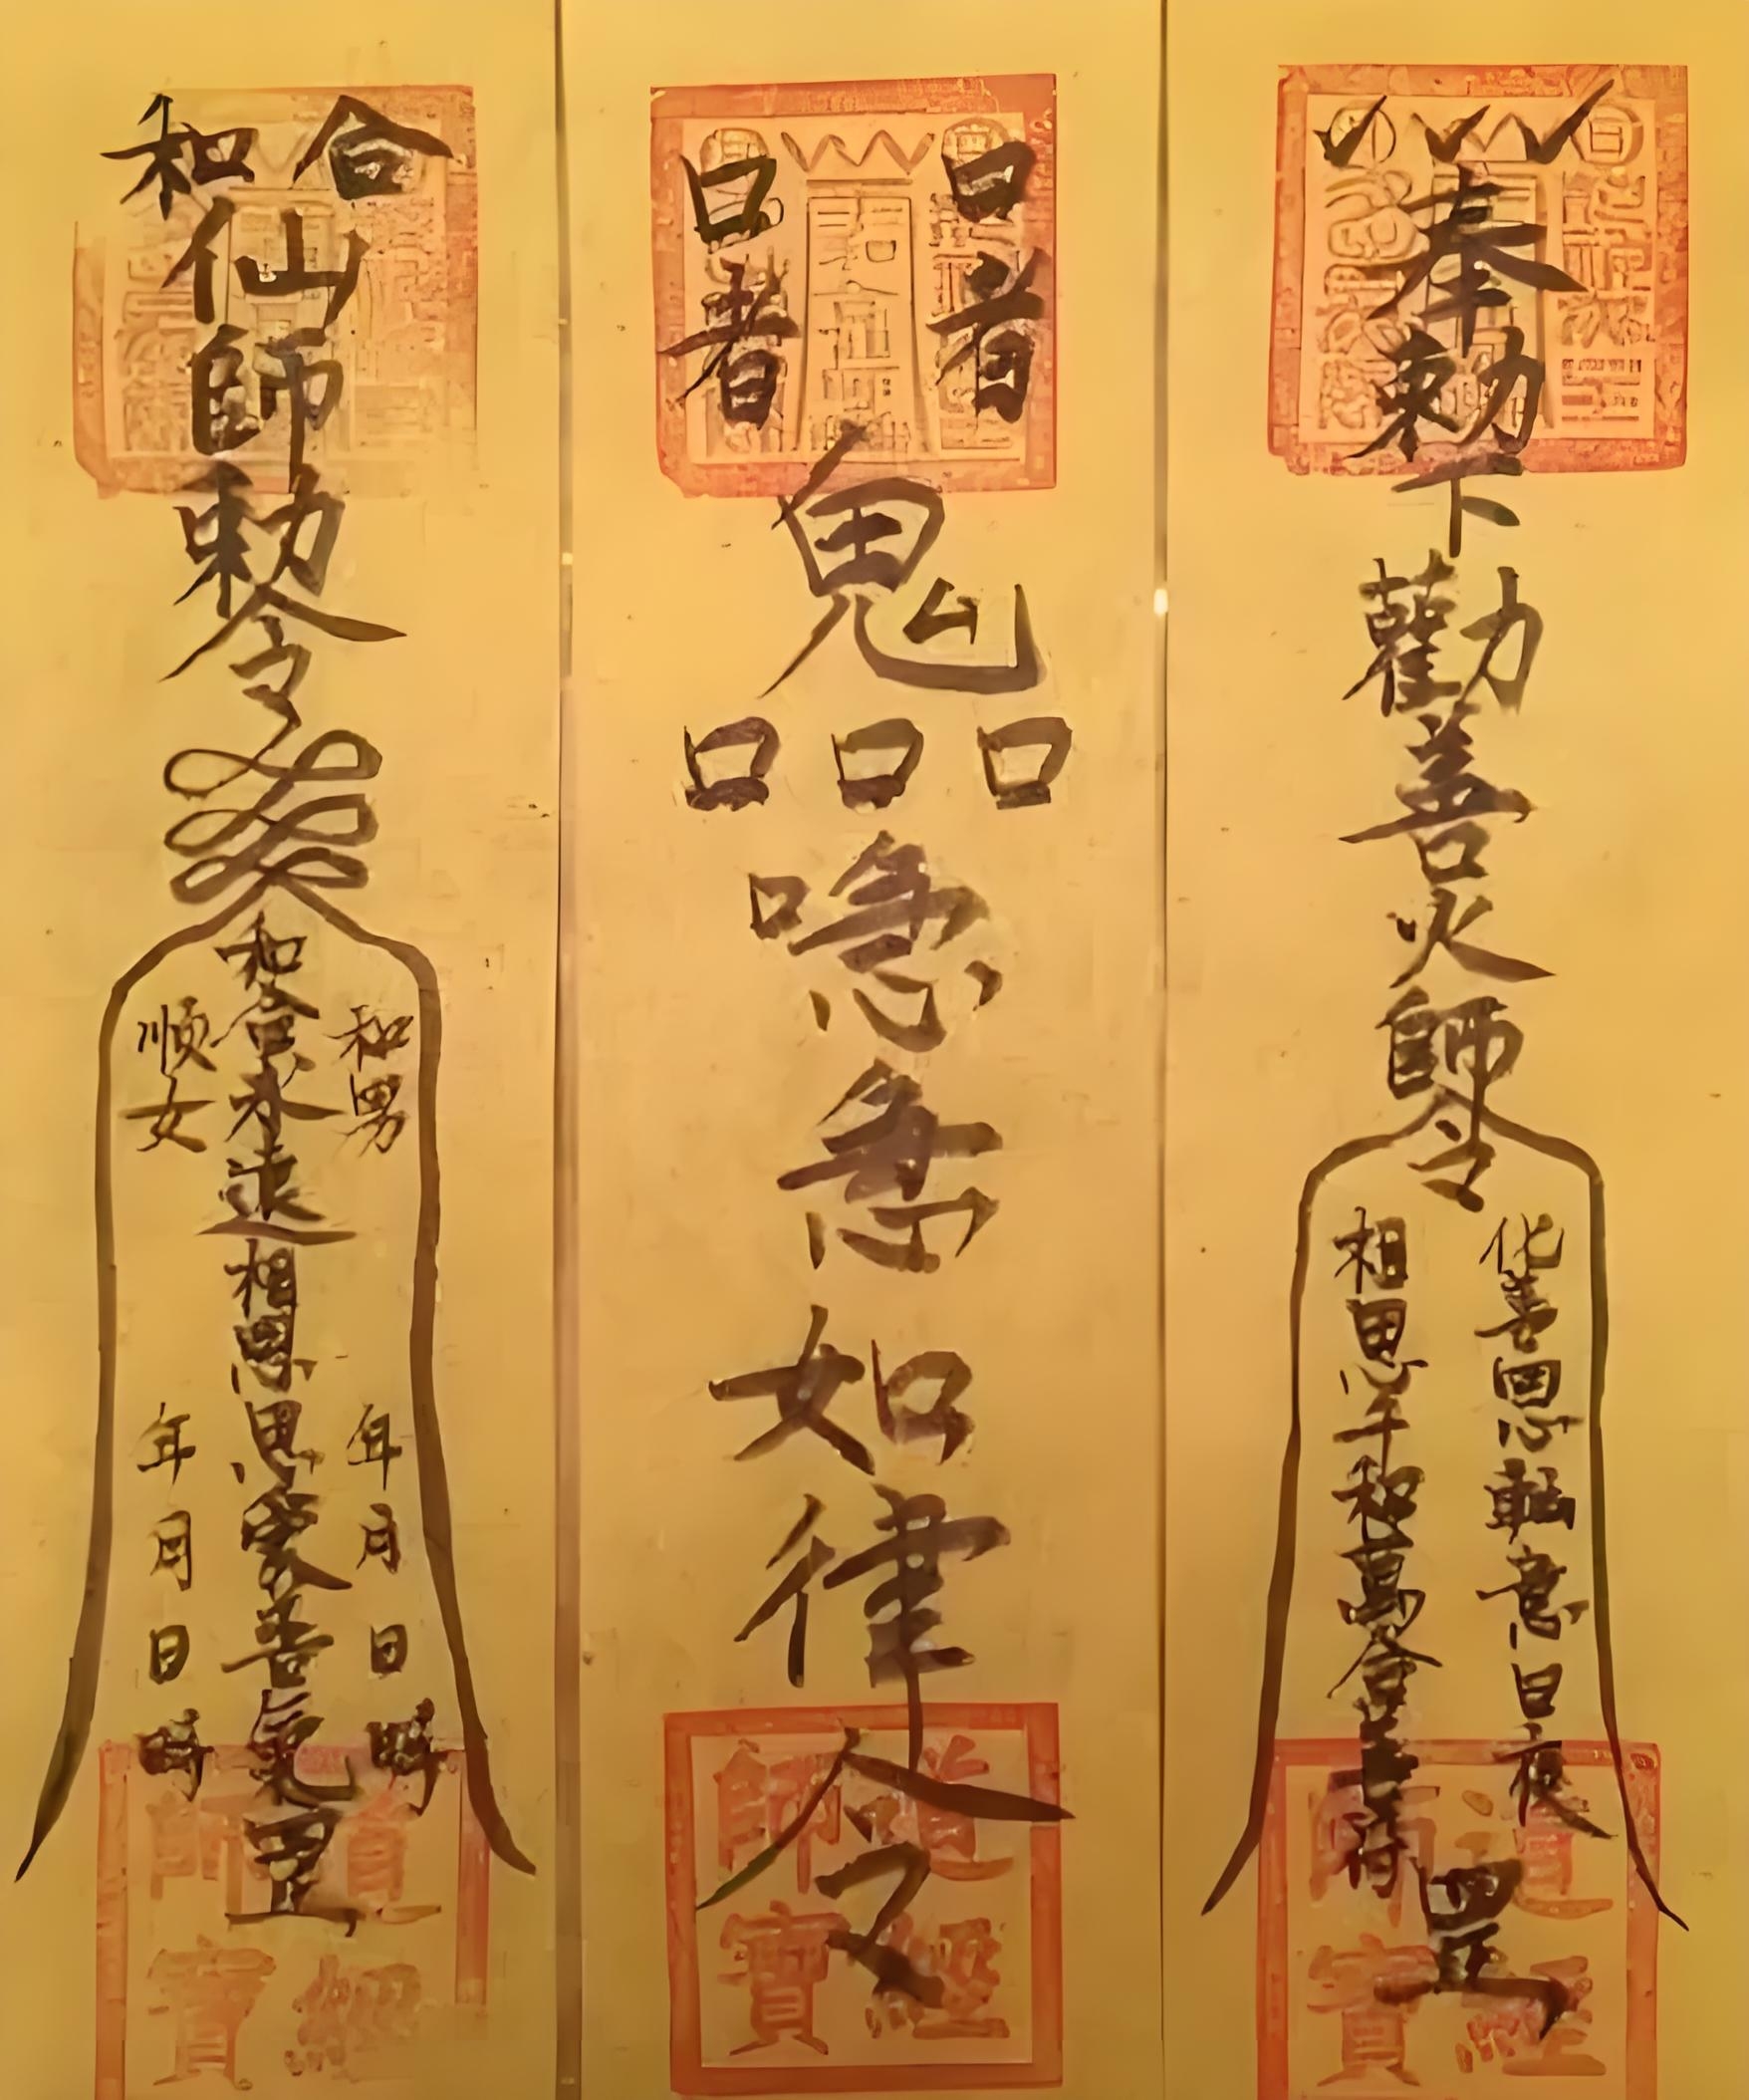 奉勅下
勸善火師令
化善思転意日夜
相思千和萬合
罡
口者 口者
鬼
口口口
喼急如律令
合和
仙師勅令
和男
年月日時
和合永遠相思思愛善氣罡
順女
年月日時
道經師寶
道經師寶
道經師寶